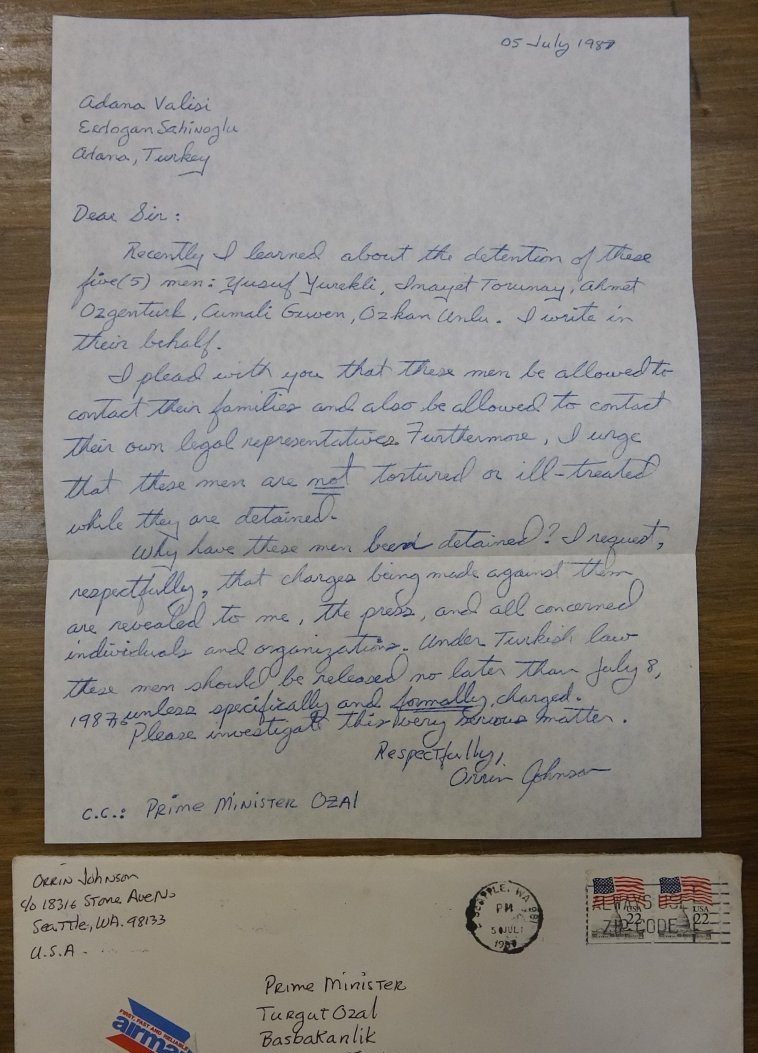 05 July 1987
Adana Valisi
Erdogan Sahinoglu
Adana, Turkey
Dear Sir:
Recently I learned about the detention of these
five(5) men: Yusuf Yurekli, Inayet Torunay, Ahmet
Ozgenturk, Cumali Guven, Ozkan Unlu. I write in
their behalf.
I plead with you that these men be allowed to
contact their families and also be allowed to contact
their own legal representatives. Furthermore, I urge
that these men are not tortured or ill-treated
while they are detained.
Why have these men been detained? I request,
respectfully, that charges being made against them
are revealed to me, the press, and all concerned
individuals and organizations. Under Turkish law
these men should be released no later than July 8,
1987, unless specifically and formally charged.
Please investigate this very serious matter.
Respectfully,
Orrin Johnson
C.C.: PRIME MINISTER OZAl
ORRIN JOHNSON
c/o 18316 Stone Ave No
Seattle, WA. 98133
U.S.A.
SEATTLE, WA 981
PM
5 JUL
1987
ALWAYS USE
ZIP CODE
USA
22
USA
22
Prime Minister
Turgut Ozal
Basbakanlik
FIRST, FAST AND RELIABLE
airmail